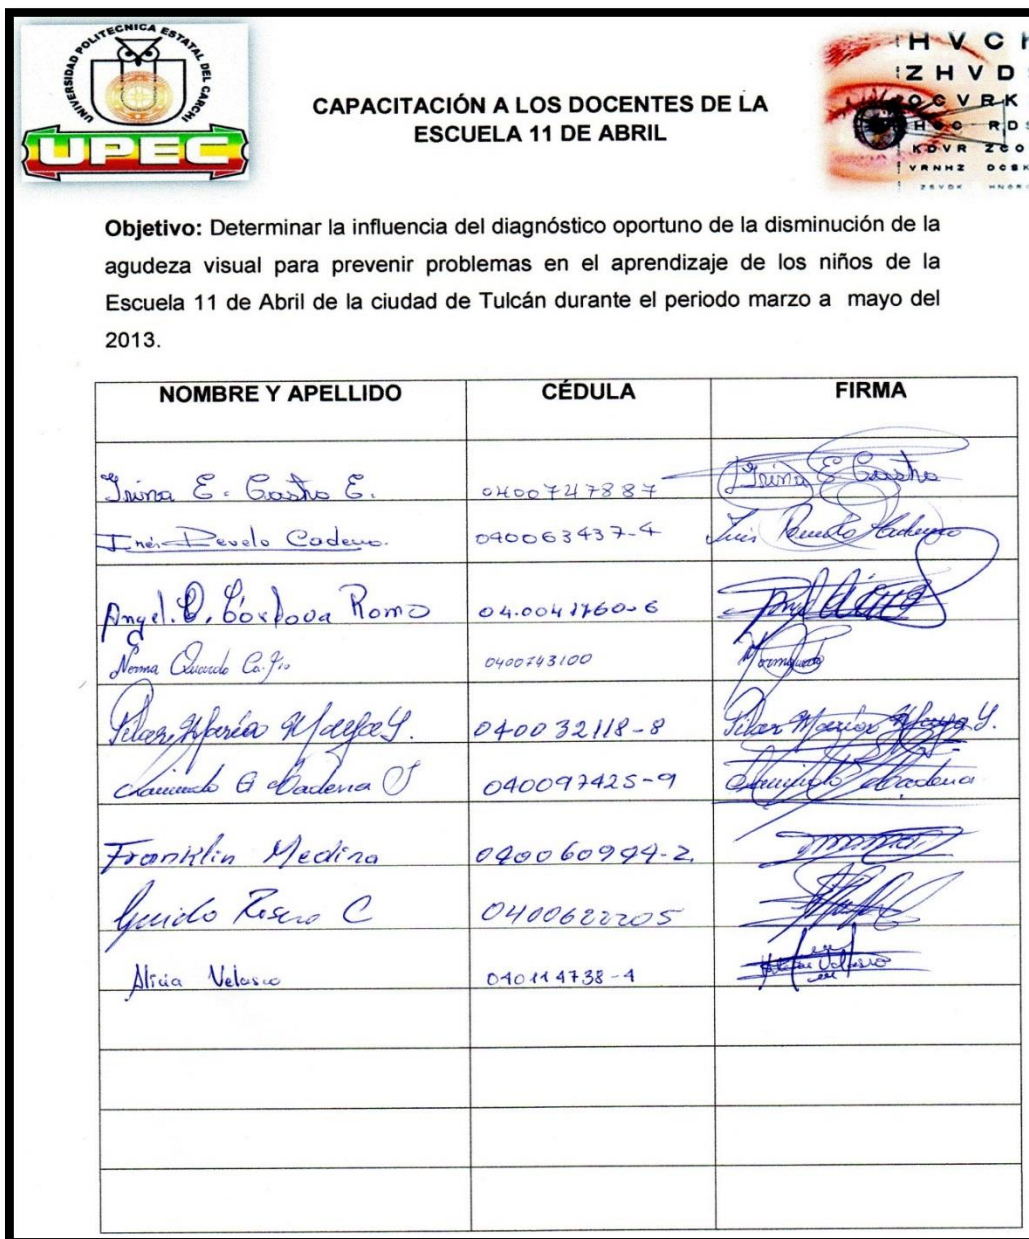 UNIVERSIDAD POLITECNICA ESTATAL DEL CARCHI
UPEC
CAPACITACIÓN A LOS DOCENTES DE LA
ESCUELA 11 DE ABRIL
H V C
Z H V D
K D V R Z C O
V R N H Z D C S K
Objetivo: Determinar la influencia del diagnóstico oportuno de la disminución de la
agudeza visual para prevenir problemas en el aprendizaje de los niños de la
Escuela 11 de Abril de la ciudad de Tulcán durante el periodo marzo a mayo del
2013.
NOMBRE Y APELLIDO CÉDULA FIRMA
Irina E. Castro E. 0400747887 Irina E Castro
Inés Revelo Cadena. 040063437-4 Inés Revelo
Angel. Córdova Romo 04.0041760-6
Norma 0400743100
Pilar María Maya Y. 040032118-8 Pilar María Maya Y.
Cadena 040097425-9 Cadena
Franklin Medina 040060944-2
Guido Rosero C 0400622205
Alicia Velasco 040114738-4 Velasco